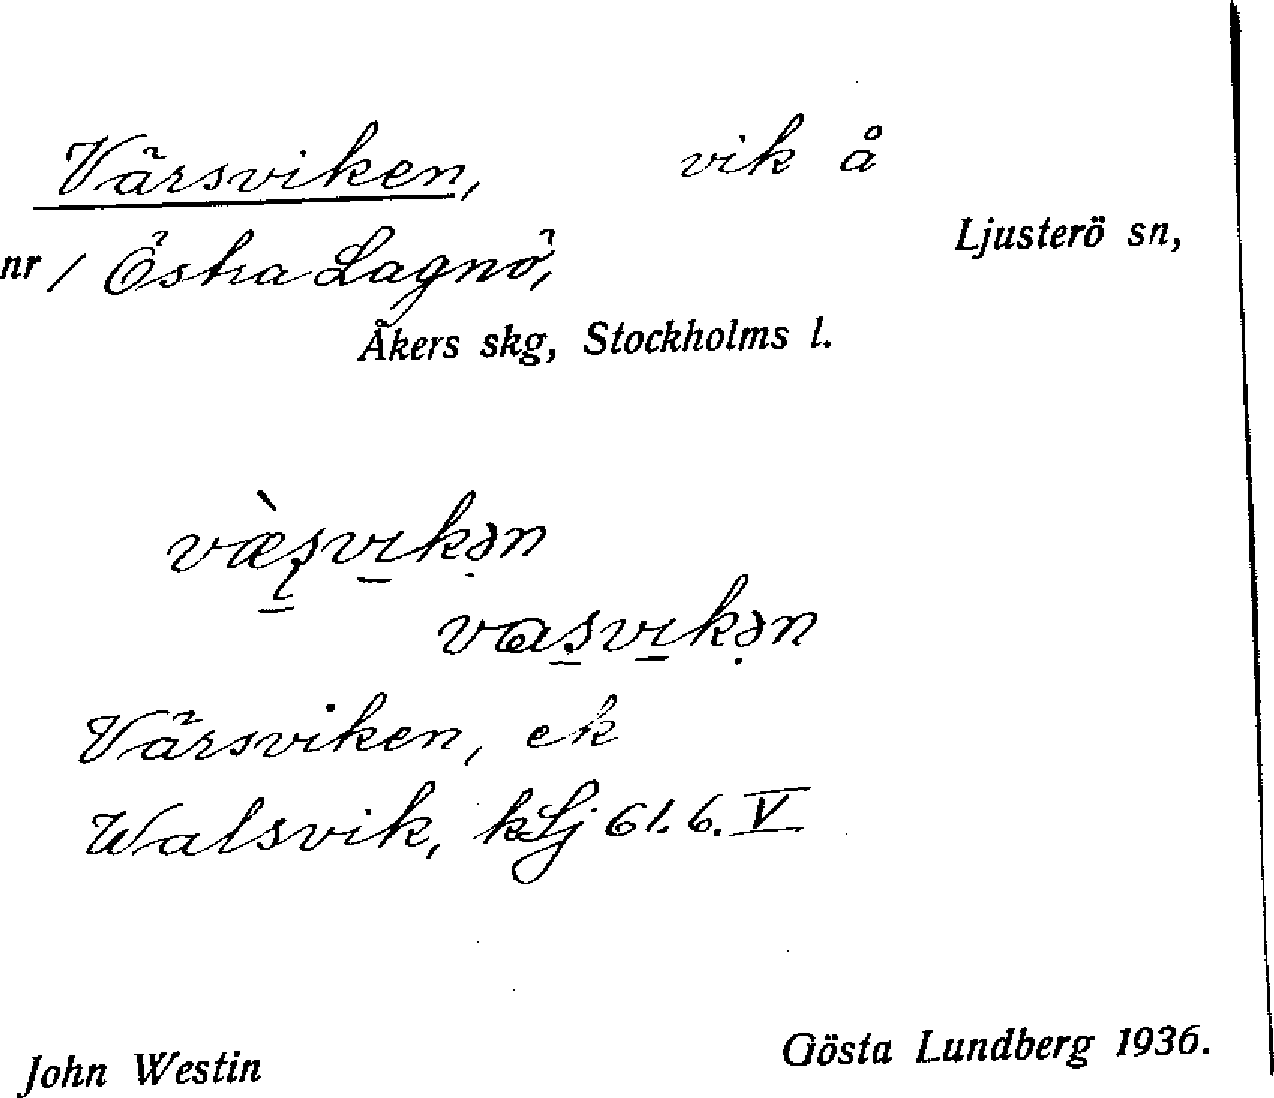 Värsviken, vik å
Ljusterö sn,
nr / Östra Lagnö,
Åkers skg, Stockholms l.
væ̀ʂvikən
vasvikən
Värsviken, ek
Walsvik, kLj 61.6.V
John Westin Gösta Lundberg 1936.